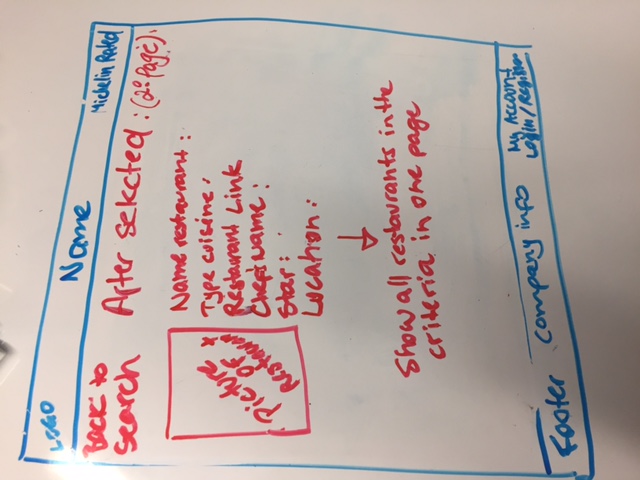 LOGO
Name
Michelin Rated
Back to
Search
After selected : (2º page).
Picture
Of
Restaurant
Name restaurant :
Type cuisine :
Restaurant Link
Chef's Name :
Star :
Location :
Show all restaurants in the
criteria in one page
Footer
company info
My Account
Login/Register